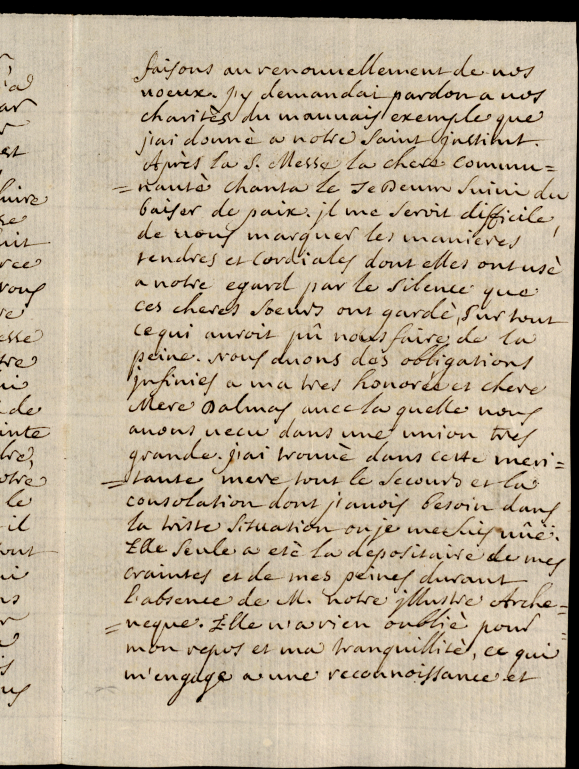 faisons au renouuellement de nos
voeux. j'y demandai pardon a nos
charités du mauuais exemple que
j'ai donnè a notre saint jnstitut.
Après la S. Messe la chere commu=
=nautè chanta le Te Deum suiui du
baiser de paix. jl me seroit difficile,
de vous marquer les manieres
tendres et cordiales dont elles ont usè
a notre egard par le silence que
ces cheres soeurs ont gardè, sur tout
ce qui auroit pû nous faire de la
peine. nous auons des obligations
jnfinies a ma tres honorée et chere
Mere Dalmas auec la quelle nous
auons vecu dans une union tres
grande. j'ai trouuè dans cette meri=
=tante mere tout le secours et la
consolation dont j'auois besoin dans
la triste situation ou je me suis vûë.
Elle seule a etè la depositaire de mes
craintes et de mes peines durant
l'absence de M. notre jllustre Arche=
=veque. Elle n'a rien oublié pour
mon repos et ma tranquillitè, ce qui
m'engage a une reconnoissance et